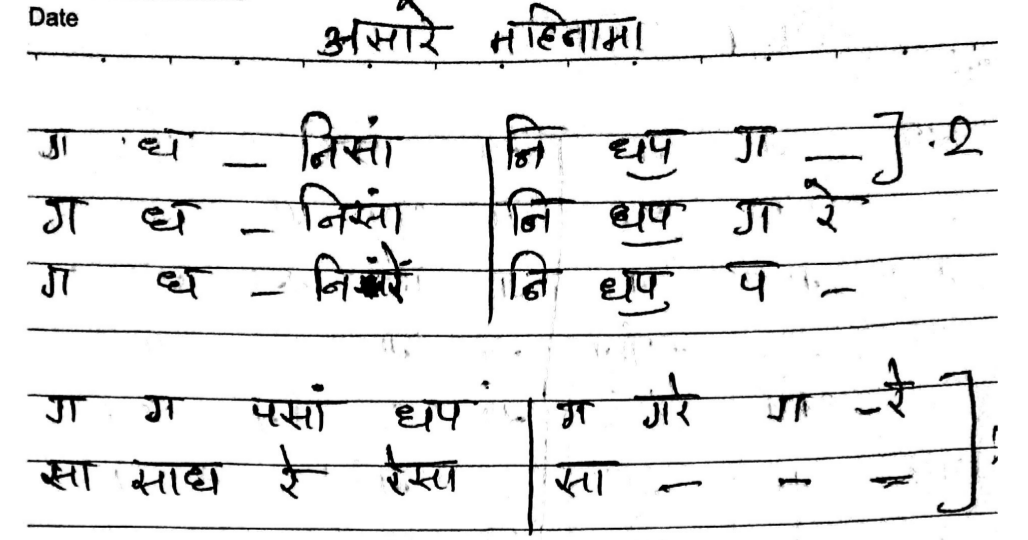 Date
असारे महिनामा
ग ध – निसां | नि धप ग – ] . २
ग ध – निसां | नि धप ग रे
ग ध – नि | नि धप प –
ग ग पसां धप | ग गरे ग –रे ]
सा साध रे रेसा | सा – – –